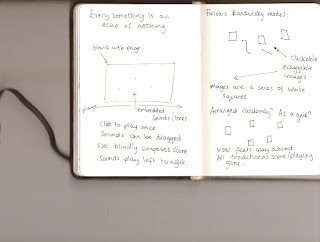 Every something is an
echo of nothing
blank web page
play
embedded
sounds/tones
Click to play once
Sounds can be dragged
User blindly composes score
Sounds play left to right.
Famous Kandinsky model:
clickable
draggable
images
Images are a series of white
squares
Arranged randomly? As a grid?
User feels way around.
All traditional score/playing
gone.